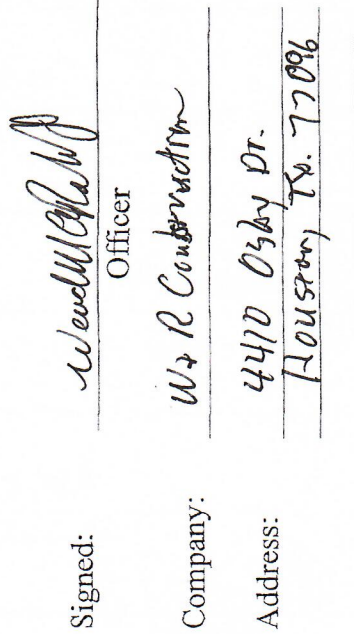 Signed:
Officer
Company: W+R Construction
Address: 4410 Osby Dr.
Houston, Tx. 77096